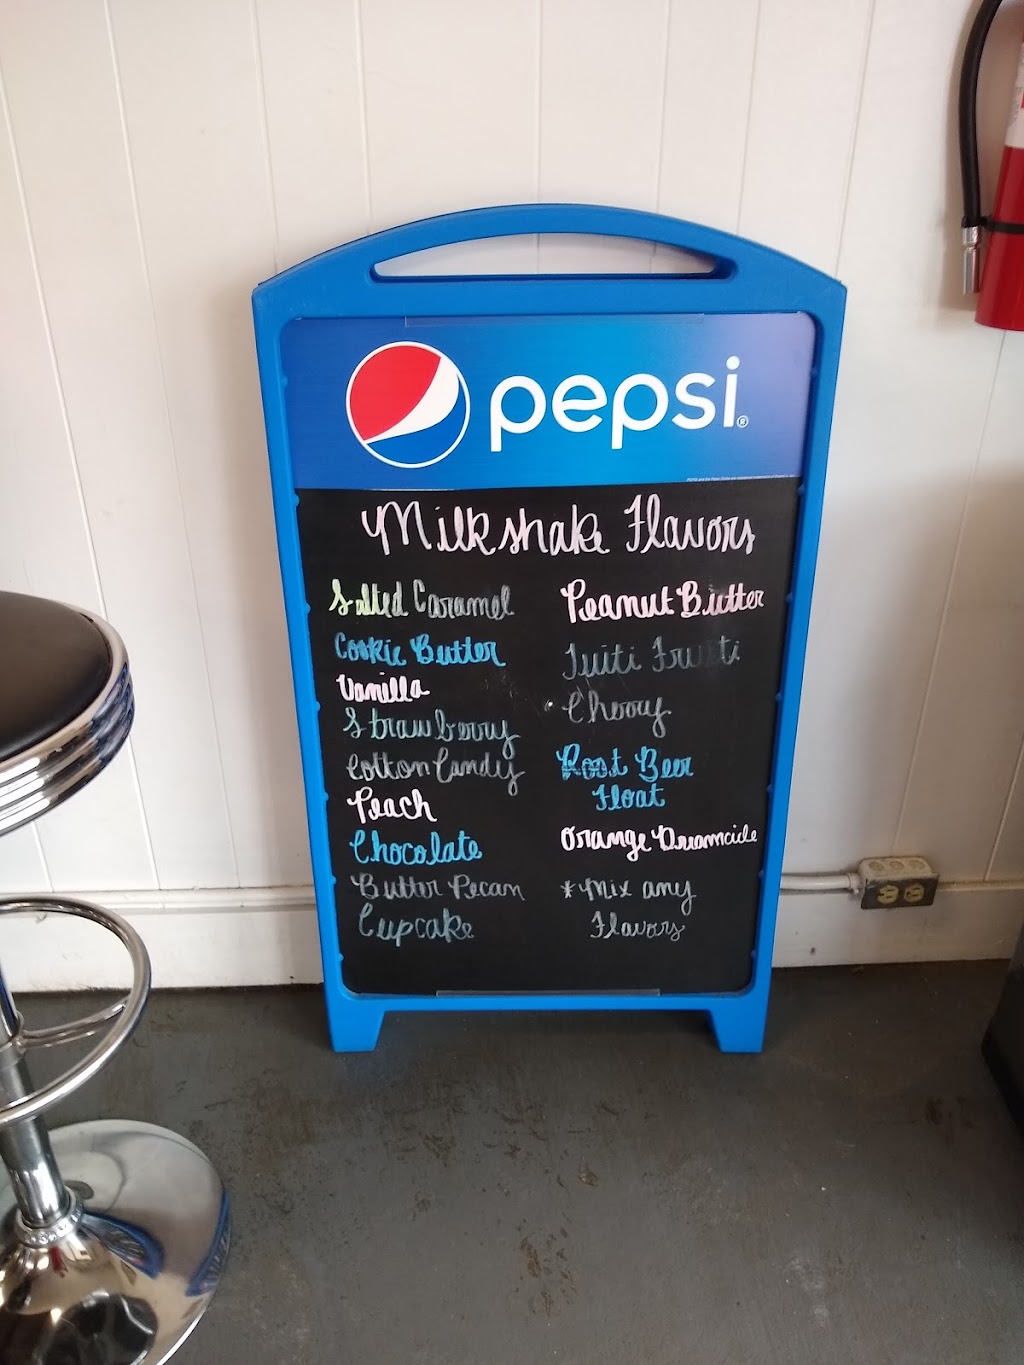 pepsi®
Milkshake Flavors
Salted Caramel
Cookie Butter
Vanilla
Strawberry
Cotton Candy
Peach
Chocolate
Butter Pecan
Cupcake
Peanut Butter
Tuiti Fruiti
Cherry
Root Beer
Float
Orange Dreamcicle
*Mix any
Flavors